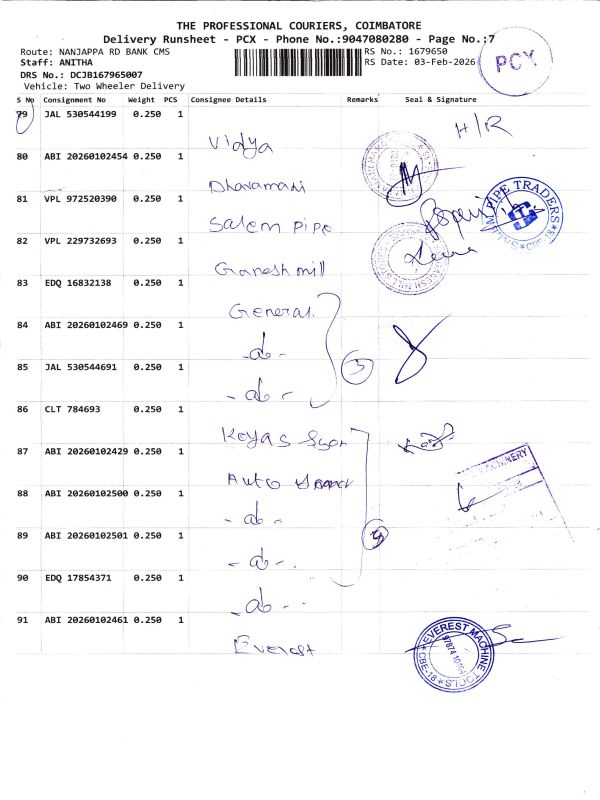 THE PROFESSIONAL COURIERS, COIMBATORE
Delivery Runsheet - PCX - Phone No.:9047080280 - Page No.:7
Route: NANJAPPA RD BANK CMS
RS No.: 1679650
Staff: ANITHA
RS Date: 03-Feb-2026
PCX
DRS No.: DCJB167965007
Vehicle: Two Wheeler Delivery
S No Consignment No Weight PCS Consignee Details Remarks Seal & Signature
79 JAL 530544199 0.250 1
Vidya H/R
80 ABI 20260102454 0.250 1
Dharamani
81 VPL 972520390 0.250 1
Salem Pipe
PIPE TRADERS
82 VPL 229732693 0.250 1
Ganesh mill
83 EDQ 16832138 0.250 1
General
84 ABI 20260102469 0.250 1
-do-
85 JAL 530544691 0.250 1
-do-
3
86 CLT 784693 0.250 1
87 ABI 20260102429 0.250 1
Auto
88 ABI 20260102500 0.250 1
-do-
89 ABI 20260102501 0.250 1
-do-
90 EDQ 17854371 0.250 1
-do-
91 ABI 20260102461 0.250 1
Everest
EVEREST MACHINE TOOLS
CBE-18